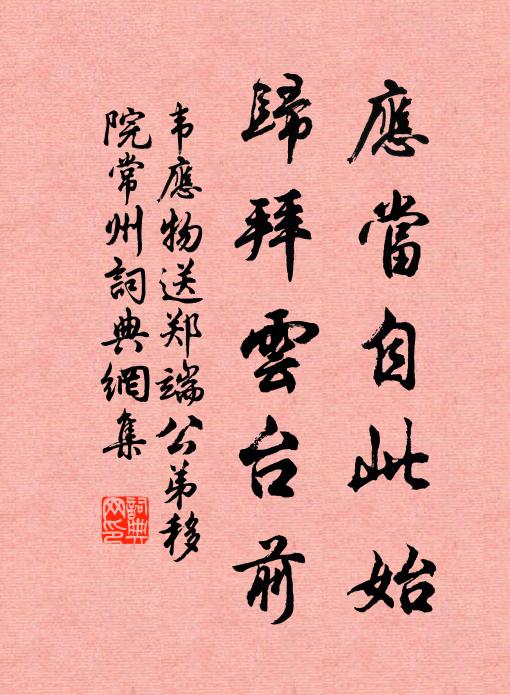 應當自此始
歸拜雲台前
韦應物送郑端公弟移
院常州詞典網集
詞典网印